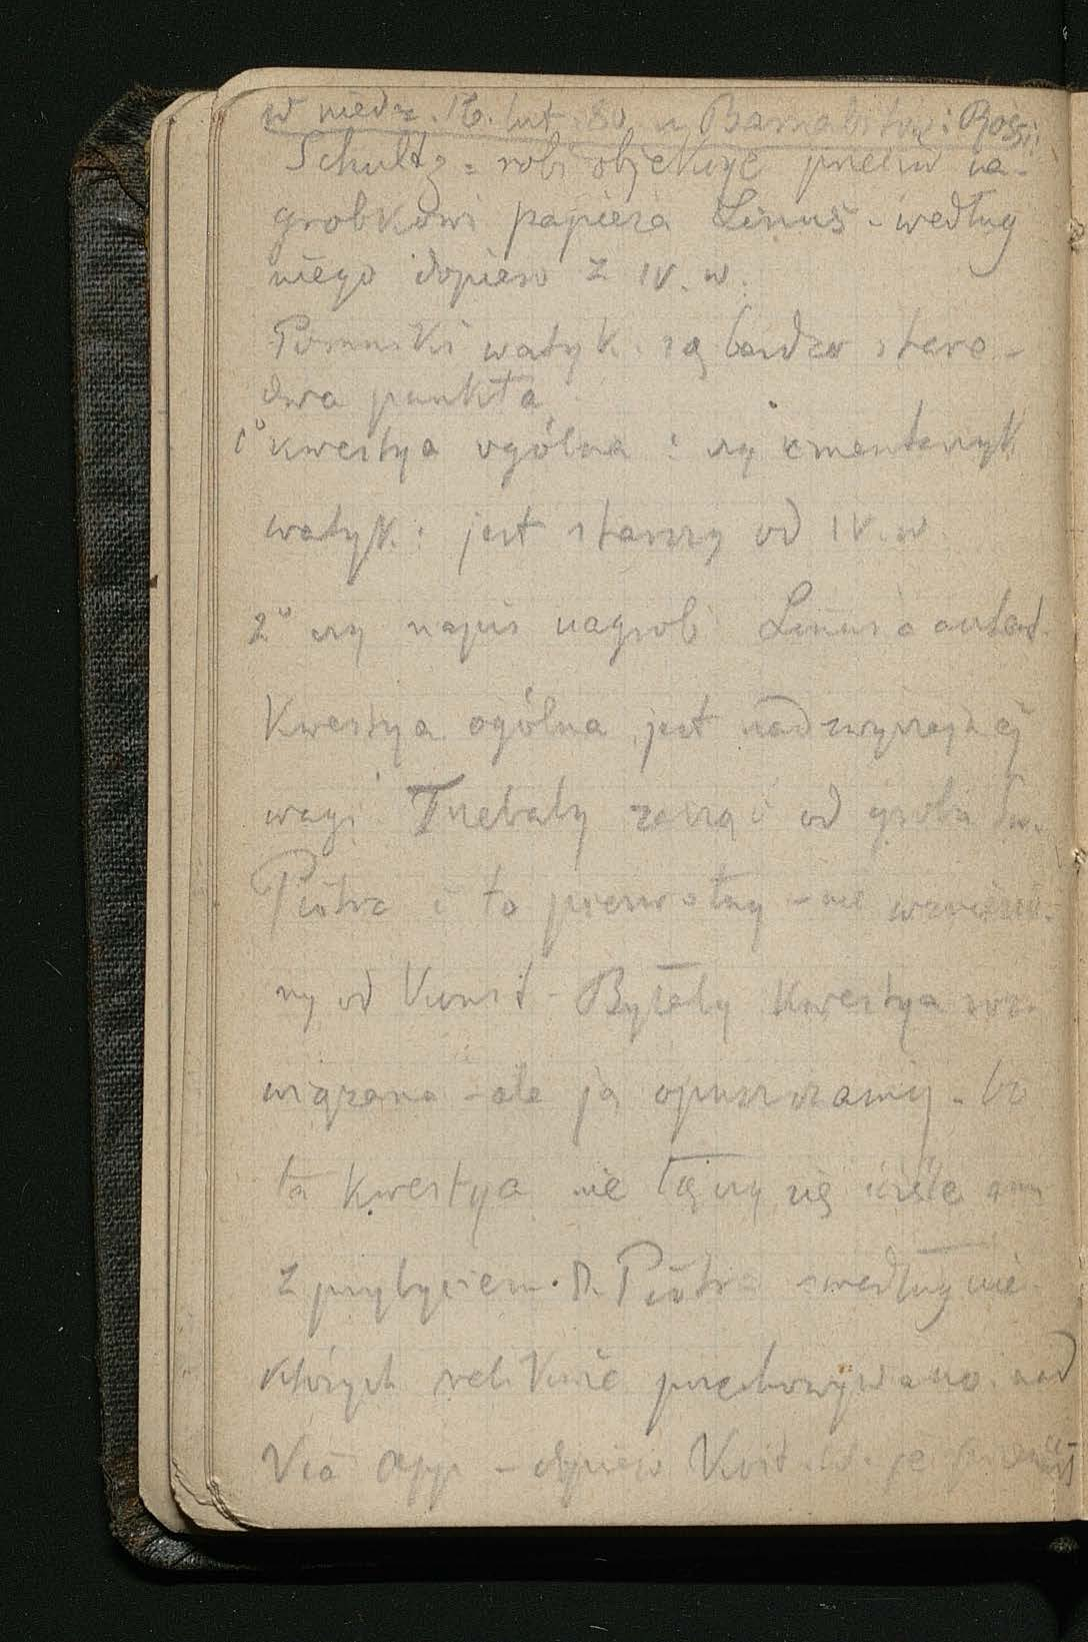 w niedz. 16. lut. 80 u Barnabitów: Rossi:
Schultz = robi objekcye przeciw na-
grobkowi papieża Linus - według
niego dopiero z IV. w.
Pomniki watyk. są bardzo stare -
dwa punkta
1° kwestya ogólna : czy cmentarzyk
watyk. jest starszy od IV. w
2° czy napis nagrob Linusa autent.
Kwestya ogólna jest nadzwyczajnej
wagi Trzebaby zacząć od grobu św.
Piotra i to pierwotny - nie wzniesio-
ny od Konst - Byłaby kwestya roz-
wiązana - ale ją opuszczamy - bo
ta kwestya nie łączy się ściśle
z przybyciem S. Piotra według nie-
których relikwie przechowywano nad
Via App - dopiero Konst.